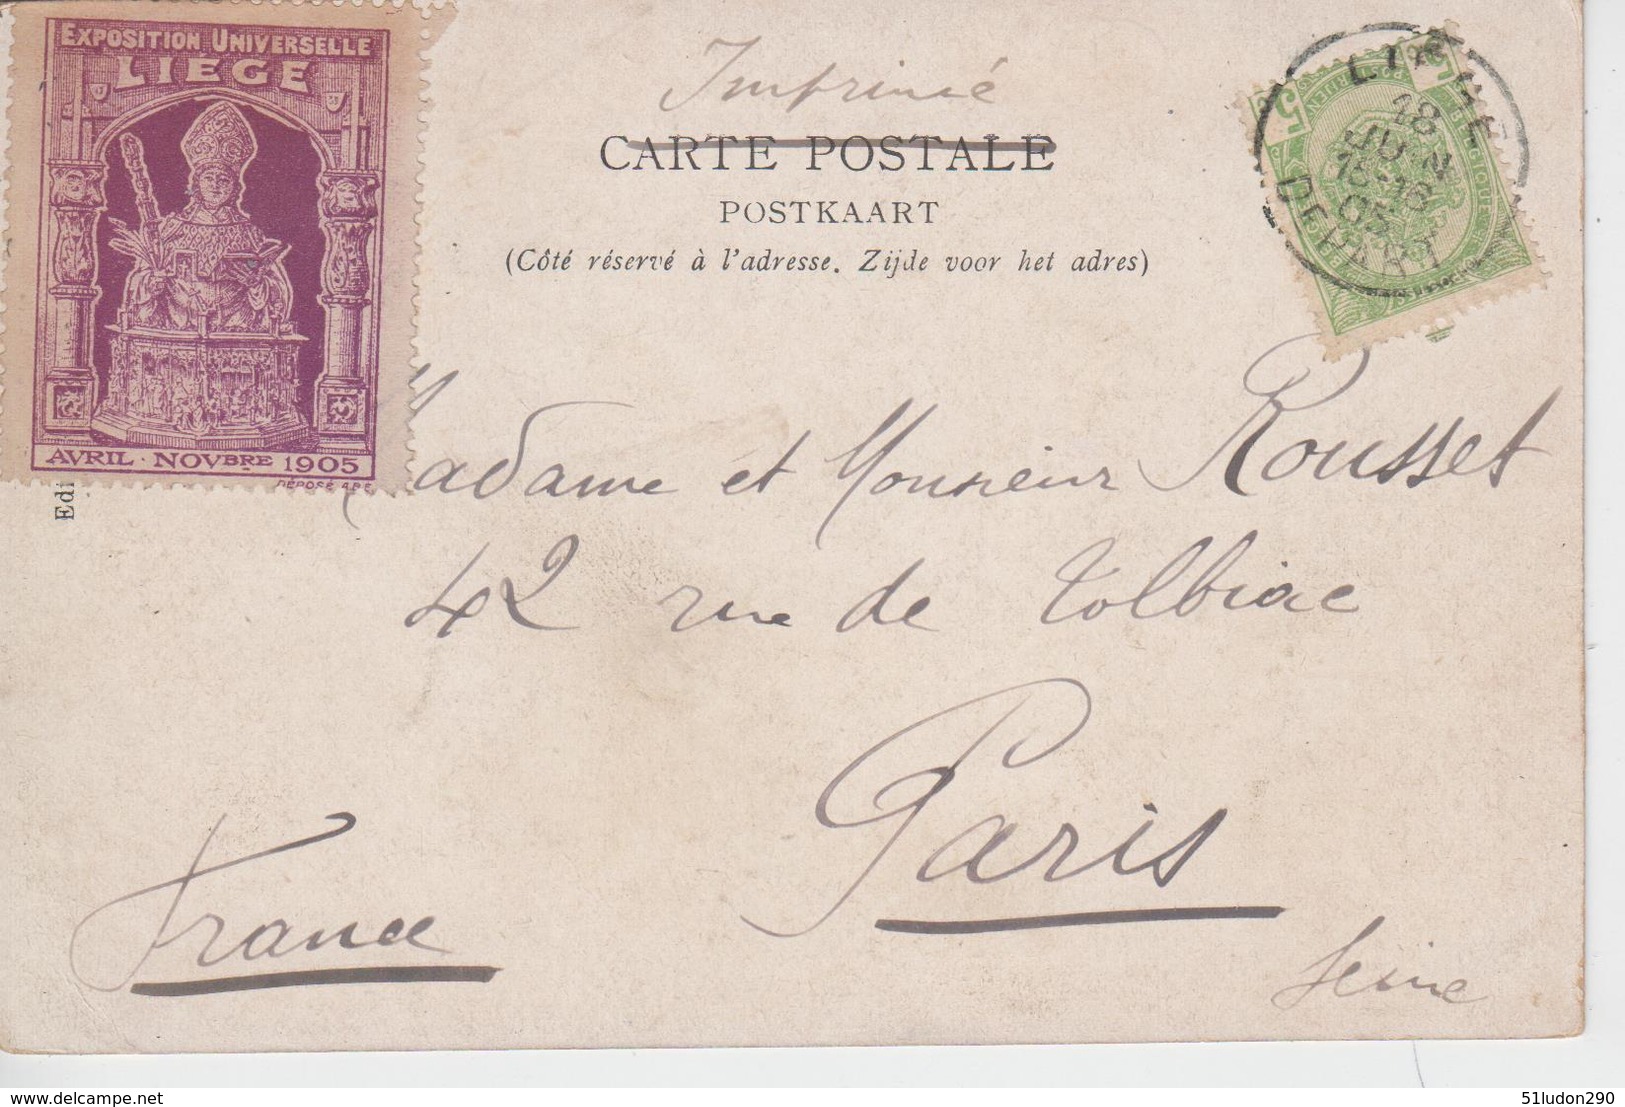 EXPOSITION UNIVERSELLE
LIEGE
AVRIL · NOVBRE 1905
DÉPOSÉ
Edi
Imprimé
CARTE POSTALE
POSTKAART
(Côté réservé à l'adresse. Zijde voor het adres)
LIEGE
18
JUIN
16-18
05
DEPART
5
BELGIQUE
Madame et Monsieur Rousset
42 rue de Tolbiac
Paris
France
Seine
delcampe.net
51ludon290